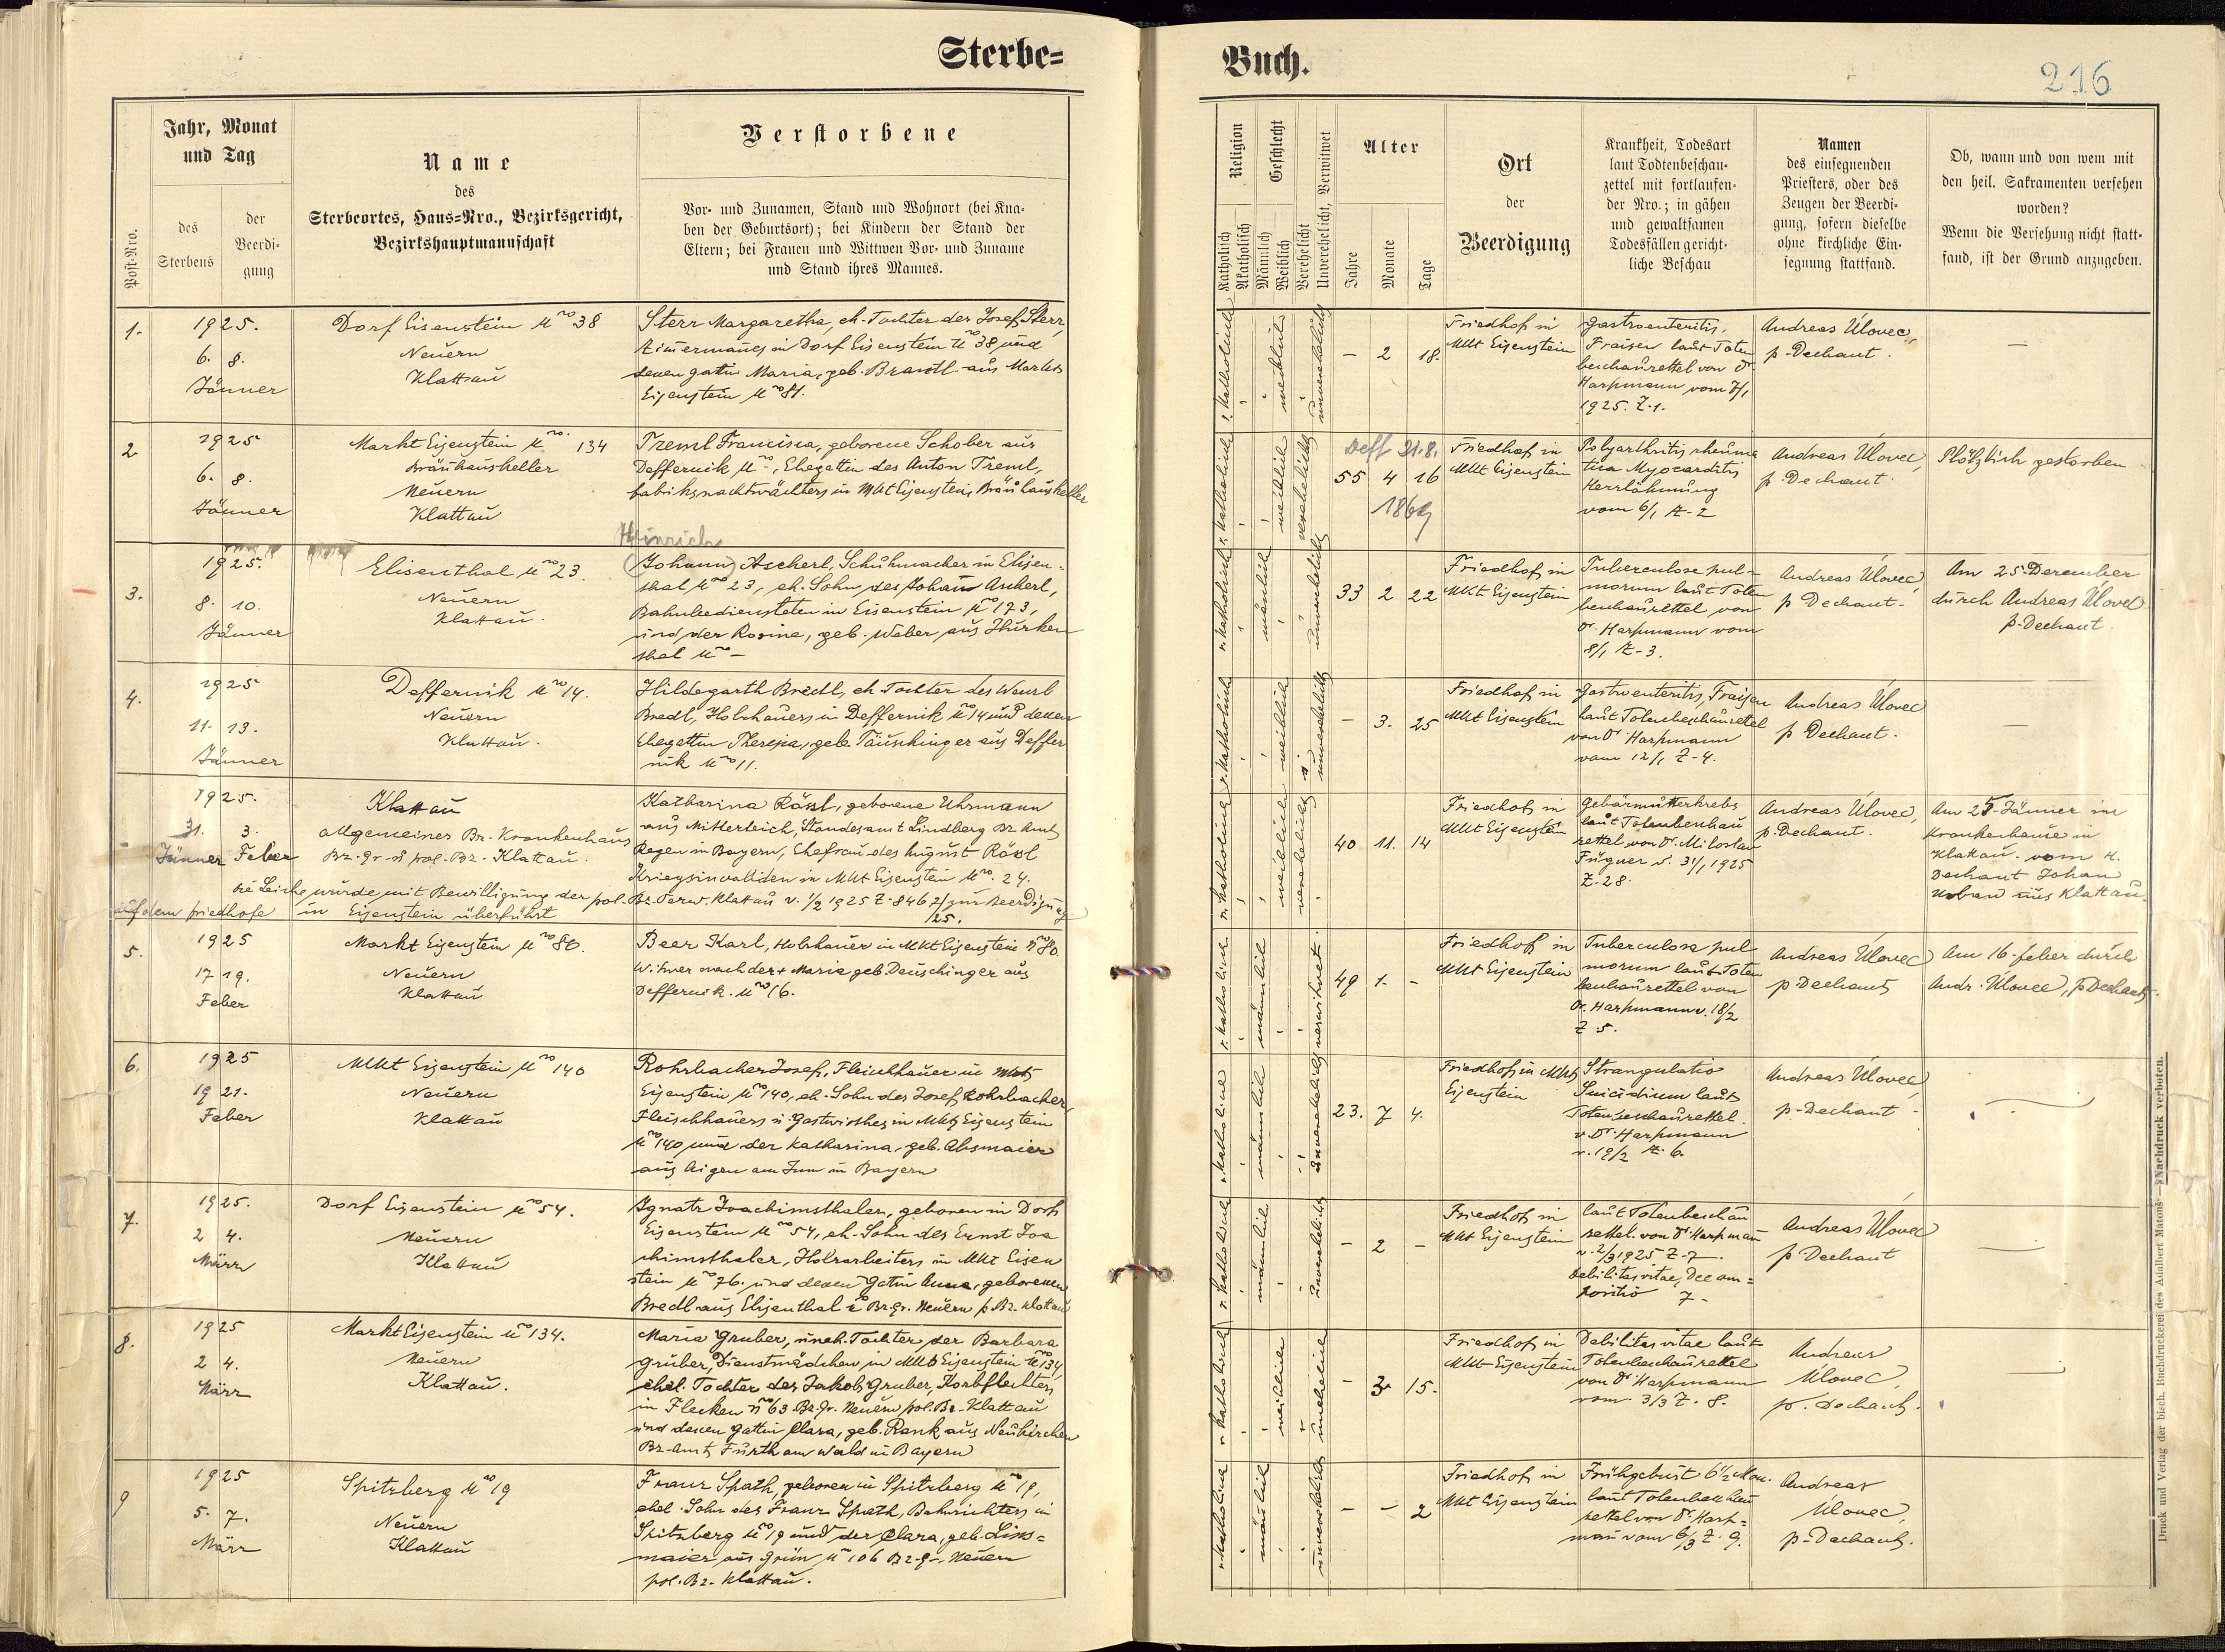 Sterbe=
Post-Nro.
Jahr, Monat
und Tag
des
Sterbens
der
Beerdi-
gung
Name
des
Sterbeortes, Haus=Nro., Bezirksgericht,
Bezirkshauptmannschaft
Verstorbene
Vor- und Zunamen, Stand und Wohnort (bei Kna-
ben der Geburtsort); bei Kindern der Stand der
Eltern; bei Frauen und Wittwen Vor- und Zuname
und Stand ihres Mannes.
1.
1925.
6. 8.
Jänner
Dorf Eisenstein No 38
Neuern
Klattau
Sterr Margaretha, eh. Tochter des Josef Sterr,
Zimermanes in Dorf Eisenstein No 38 und
dessen gattin Maria, geb. Brantl aus Markt
Eisenstein No 81.
2
1925
6. 8.
Jänner
Markt Eisenstein No. 134
Bräuhauskeller
Neuern
Klattau
Treml Francisca, geborene Schober aus
Deffernik No -, Ehegattin des Anton Treml,
fabriksnachtwächters in Mkt Eisenstein, Bräuhauskeller
3.
1925.
8. 10.
Jänner
Elisenthal No 23.
Neuern
Klattau.
Heinrich
(Johann) Aschert, Schuhmacher in Elisen-
thal No 23, eh. Sohn des Johann Aschert,
Bahnbediensteten in Eisenstein No 173,
und der Rosina, geb. Weber, aus Hurken
thal No -
4.
1925
11. 13.
Jänner
Deffernik No 14.
Neuern
Klattau.
Hildegarth Bredl, eh Tochter des Wenzl
Bredl, Holzhauers in Deffernik No 14 und dessen
Ehegattin Theresia, geb. Täuschinger aus Deffer
nik No 11.
-
1925.
31. 3.
Jänner Feber
Klattau
allgemeines Bz. Krankenhaus
Bz. Gr. u pol. Bz. Klattau.
Katharina Rössl, geborene Uhrmann
aus Mitterteich, Standesamt Lindberg Bz Amt
Regen in Bayern, Ehefrau des August Rössl
Kriegsinvaliden in Mkt Eisenstein No. 24.
Die Leiche wurde mit Bewilligung der pol. Bz. Verw. Klattau v. 1/2 1925 Z. 8462/25 zur Beerdigung
auf dem friedhofe in Eisenstein überführt
5.
1925
17 19.
Feber
Markt Eisenstein No 80.
Neuern
Klattau
Beer Karl, Holzhauer in Mkt Eisenstein No 80.
Witwer nach der + Maria geb. Deuschinger aus
Deffernik. No 16.
6.
1925
19 21.
Feber
Mkt Eisenstein No 140
Neuern
Klattau
Rohrbacher Josef, Fleischhauer in Mkt
Eisenstein No 140, eh. Sohn des Josef Rohrbacher,
Fleischhauers u. Gastwirthes in Mkt Eisenstein
No 140 und der Katharina, geb. Absmaier
aus Aigen am Inn in Bayern
7.
1925.
2 4.
März
Dorf Eisenstein No 54.
Neuern
Klattau
Ignatz Joachimsthaler, geboren in Dorf
Eisenstein No 54, eh. Sohn des Ernst Joa
chimsthaler, Holzarbeiters in Mkt Eisen
stein No 76. und dessen Gattin Anna, geborenen
Bredl aus Elisenthal Bz. Gr. Neuern p. Bz. Klattau
8.
1925
2 4.
März
Markt Eisenstein No 134.
Neuern
Klattau.
Maria Gruber, uneh. Tochter der Barbara
Gruber, Dienstmädchen in Mkt Eisenstein No 134,
ehel. Tochter des Jakob Gruber, Korbflechters
in Flecken No 63 Bz. Gr. Neuern pol. Bz. Klattau
und dessen Gattin Clara, geb. Rank aus Neukirchen
Bz. Amt Furth am Wald in Bayern
9
1925
5. 7.
März
Spitzberg No 19
Neuern
Klattau
Franz Spath, geboren in Spitzberg No 19,
ehel. Sohn des Franz Spath, Bahnrichters in
Spitzberg No 19 und der Clara, geb. Lins=
maier aus Grün No 106 Bz. Gr. Neuern
pol. Bz. Klattau.
Buch.
216
Religion
Katholisch
Akatholisch
Geschlecht
Männlich
Weiblich
Verehelicht
Unverehelicht, Verwitwet
Alter
Jahre
Monate
Tage
Ort
der
Beerdigung
Krankheit, Todesart
laut Todtenbeschau-
zettel mit fortlaufen-
der Nro.; in gähen
und gewaltsamen
Todesfällen gericht-
liche Beschau
Namen
des einsegnenden
Priesters, oder des
Zeugen der Beerdi-
gung, sofern dieselbe
ohne kirchliche Ein-
segnung stattfand.
Ob, wann und von wem mit
den heil. Sakramenten versehen
worden?
Wenn die Versehung nicht statt-
fand, ist der Grund anzugeben.
r. katholisch
weiblich
unverehelicht
- 2 18.
Friedhof in
Mkt Eisenstein
Gastroenteritis.
Fraisen laut Toten
beschauzettel von Dr
Harpmann vom 7/1
1925. Z. 1.
Andreas Úlovec,
p. Dechant.
—
r. katholisch
weiblich
verehelicht
Deff 21.8.
55 4 16
1869
Friedhof in
Mkt Eisenstein
Polyarthritis rheuma
tica Myocarditis
Herzlähmung
vom 6/1 Z. 2
Andreas Úlovec,
p. Dechant.
Plötzlich gestorben
r. katholisch
mänlich
unverehelicht
33 2 22
Friedhof in
Mkt Eisenstein
Tuberculose pul-
monum laut Toten
beschauzettel von
Dr. Harpmann vom
8/1 Z. 3.
Andreas Úlovec,
p Dechant.
Am 25. Dezember
durch Andreas Úlovec
p. Dechant.
r. katholisch
weiblich
unverehelicht
- 3. 25
Friedhof in
Mkt Eisenstein
Gastroenteritis, Fraisen
laut Totenbeschauzettel
von Dr. Harpmann
vom 12/1 Z. 4.
Andreas Úlovec
p Dechant.
—
r. katholisch
weiblich
verehelicht
40 11. 14
Friedhof in
Mkt Eisenstein
Gebärmutterkrebs
laut Totenbeschau
zettel von Dr. Miloslav
Fügner v. 31/1 1925
Z. 28.
Andreas Úlovec,
p. Dechant.
Am 25 Jänner im
Krankenhause in
Klattau. vom H.
Dechant Johan
Urban aus Klattau.
r. katholisch
mänlich
verwitwet
49 1. -
Friedhof in
Mkt Eisenstein
Tuberculose pul
monum laut Toten
beschauzettel von
Dr. Harpmann v. 18/2
Z 5.
Andreas Úlovec
p Dechant
Am 16. feber durch
Andr. Úlovec, p Dechant.
r. katholisch
männlich
unverehelicht
23. 7 4.
Friedhof in Mkt
Eisenstein
Strangulatio
Suicidium laut
Totenbeschauzettel.
v Dr. Harpmann
v. 19/2 Z. 6.
Andreas Úlovec,
p. Dechant
—
r. katholisch
männlich
unverehelicht
- 2 -
Friedhof in
Mkt Eisenstein
laut Totenbeschau
zettel. von Dr. Harpman
v. 2/3 1925 Z. 7.
Debilitas vitae,
7-
Andreas Úlovec
p Dechant
—
r. katholisch
weiblich
unehelich
- 3 15.
Friedhof in
Mkt Eisenstein
Debilitas vitae laut
Totenbeschauzettel
von Dr Harpmann
vom 3/3 Z. 8.
Andreas
Úlovec,
p. Dechant.
—
r. katholisch
mänlich
unverehelicht
- - 2
Friedhof in
Mkt Eisenstein
Frühgeburt 6 1/2 Mon.
laut Totenbeschau
zettel von Dr. Harp=
man vom 6/3 Z. 9.
Andreas
Úlovec,
p. Dechant.
Druck und Verlag der bisch. Buchdruckerei des Adalbert Matouš — »Nachdruck verboten.